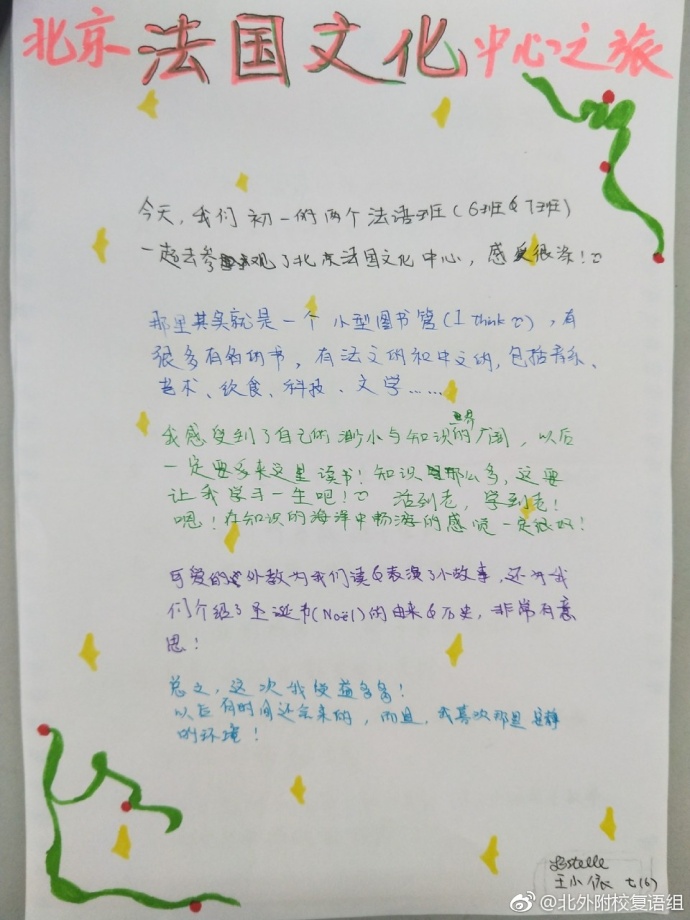 北京法国文化中心之旅
今天，我们初一的两个法语班（6班&7班）
一起去参观了北京法国文化中心，感受很深！
那里其实就是一个小型图书馆（I think），有
很多有名的书，有法文的和中文的，包括音乐、
艺术、饮食、科技、文学……
我感受到了自己的渺小与知识世界的广阔，以后
一定要多来这里读书！知识那么多，这要
让我学习一生吧！活到老，学到老！
嗯！在知识的海洋中畅游的感觉一定很好！
可爱的外教为我们读&表演了小故事，还为我
们介绍了圣诞节（Noël）的由来&历史，非常有意
思！
总之，这次我受益多多！
以后有时间还会来的，而且，我喜欢那里安静
的环境！
Estelle
王小依 七（6）
@北外附校复语组